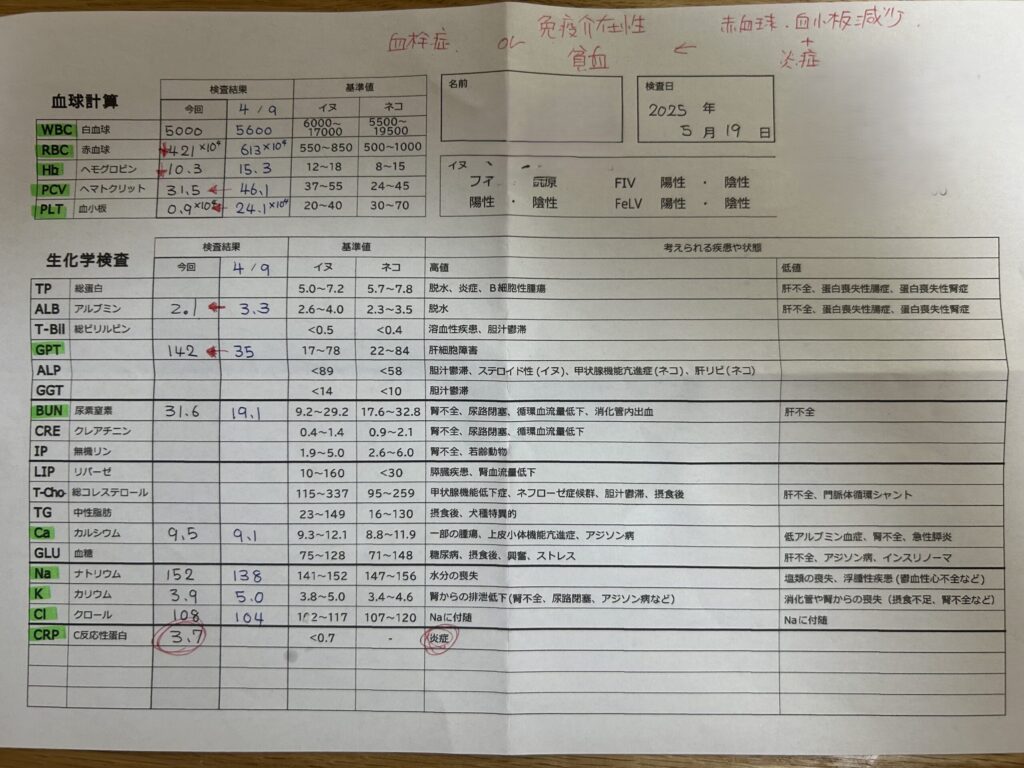 血栓症 or 免疫介在性貧血 ← 赤血球・血小板減少 + 炎症
血球計算 検査結果 基準値
今回 4/9 イヌ ネコ
WBC 白血球 5000 5600 6000~17000 5500~19500
RBC 赤血球 ↓421×10⁴ 613×10⁴ 550~850 500~1000
Hb ヘモグロビン ↓10.3 15.3 12~18 8~15
PCV ヘマトクリット 31.5 ← 46.1 37~55 24~45
PLT 血小板 0.9×10⁴ ← 24.1×10⁴ 20~40 30~70
名前
検査日
2025 年
5 月 19 日
イヌ
FIV 陽性 ・ 陰性
陽性 ・ 陰性 FeLV 陽性 ・ 陰性
生化学検査 検査結果 基準値 考えられる疾患や状態
今回 4/9 イヌ ネコ 高値 低値
TP 総蛋白 5.0~7.2 5.7~7.8 脱水、炎症、B細胞性腫瘍 肝不全、蛋白喪失性腸症、蛋白喪失性腎症
ALB アルブミン 2.1 ← 3.3 2.6~4.0 2.3~3.5 脱水 肝不全、蛋白喪失性腸症、蛋白喪失性腎症
T-Bil 総ビリルビン <0.5 <0.4 溶血性疾患、胆汁鬱滞
GPT 142 ← 35 17~78 22~84 肝細胞障害
ALP <89 <58 胆汁鬱滞、ステロイド性(イヌ)、甲状腺機能亢進症(ネコ)、肝リピ(ネコ)
GGT <14 <10 胆汁鬱滞
BUN 尿素窒素 31.6 19.1 9.2~29.2 17.6~32.8 腎不全、尿路閉塞、循環血流量低下、消化管内出血 肝不全
CRE クレアチニン 0.4~1.4 0.9~2.1 腎不全、尿路閉塞、循環血流量低下
IP 無機リン 1.9~5.0 2.6~6.0 腎不全、若齢動物
LIP リパーゼ 10~160 <30 膵臓疾患、腎血流量低下
T-Cho 総コレステロール 115~337 95~259 甲状腺機能低下症、ネフローゼ症候群、胆汁鬱滞、摂食後 肝不全、門脈体循環シャント
TG 中性脂肪 23~149 16~130 摂食後、犬種特異的
Ca カルシウム 9.5 9.1 9.3~12.1 8.8~11.9 一部の腫瘍、上皮小体機能亢進症、アジソン病 低アルブミン血症、腎不全、急性膵炎
GLU 血糖 75~128 71~148 糖尿病、摂食後、興奮、ストレス 肝不全、アジソン病、インスリノーマ
Na ナトリウム 152 138 141~152 147~156 水分の喪失 塩類の喪失、浮腫性疾患(鬱血性心不全など)
K カリウム 3.9 5.0 3.8~5.0 3.4~4.6 腎からの排泄低下(腎不全、尿路閉塞、アジソン病など) 消化管や腎からの喪失(摂食不足、腎不全など)
Cl クロール 108 104 102~117 107~120 Naに付随 Naに付随
CRP C反応性蛋白 3.7 <0.7 - 炎症